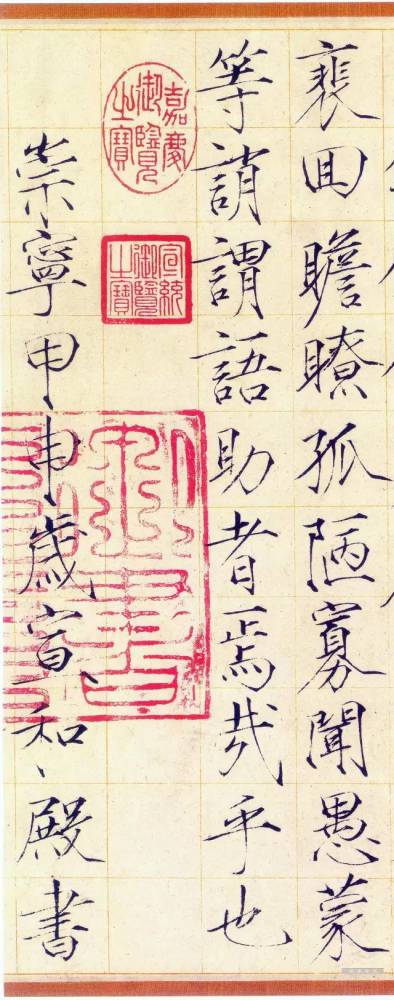 裵囘瞻瞭孤陋寡聞愚蒙
等誚謂語助者焉哉乎也
嘉慶
御覽
之寶
宣統
御覽
之寶
崇寧甲申歲宣和殿書